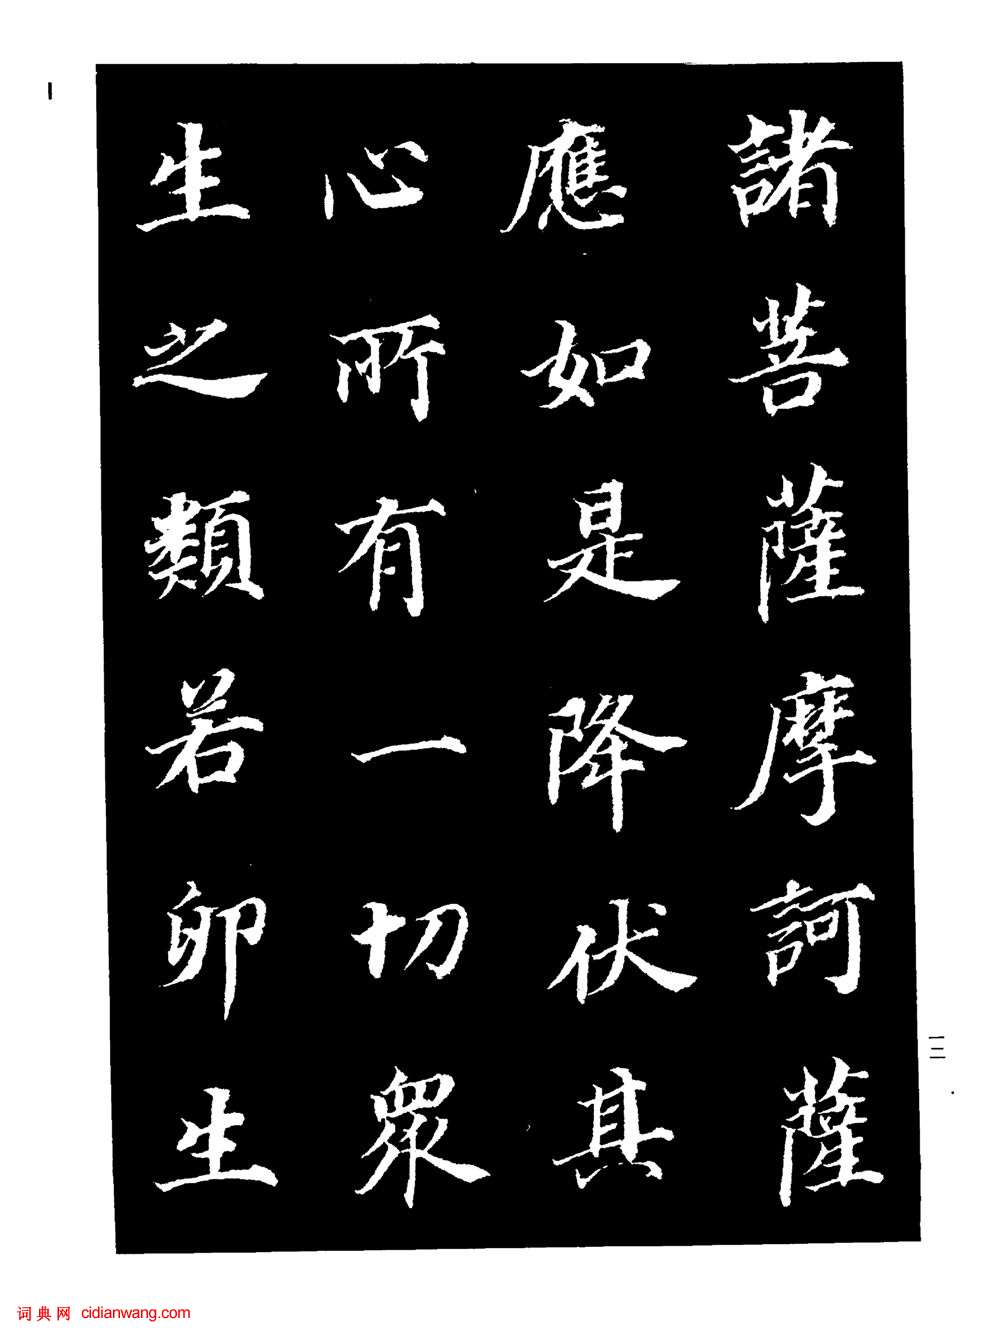 諸菩薩摩訶薩
應如是降伏其
心所有一切眾
生之類若卵生
一二
詞典网 cidianwang.com